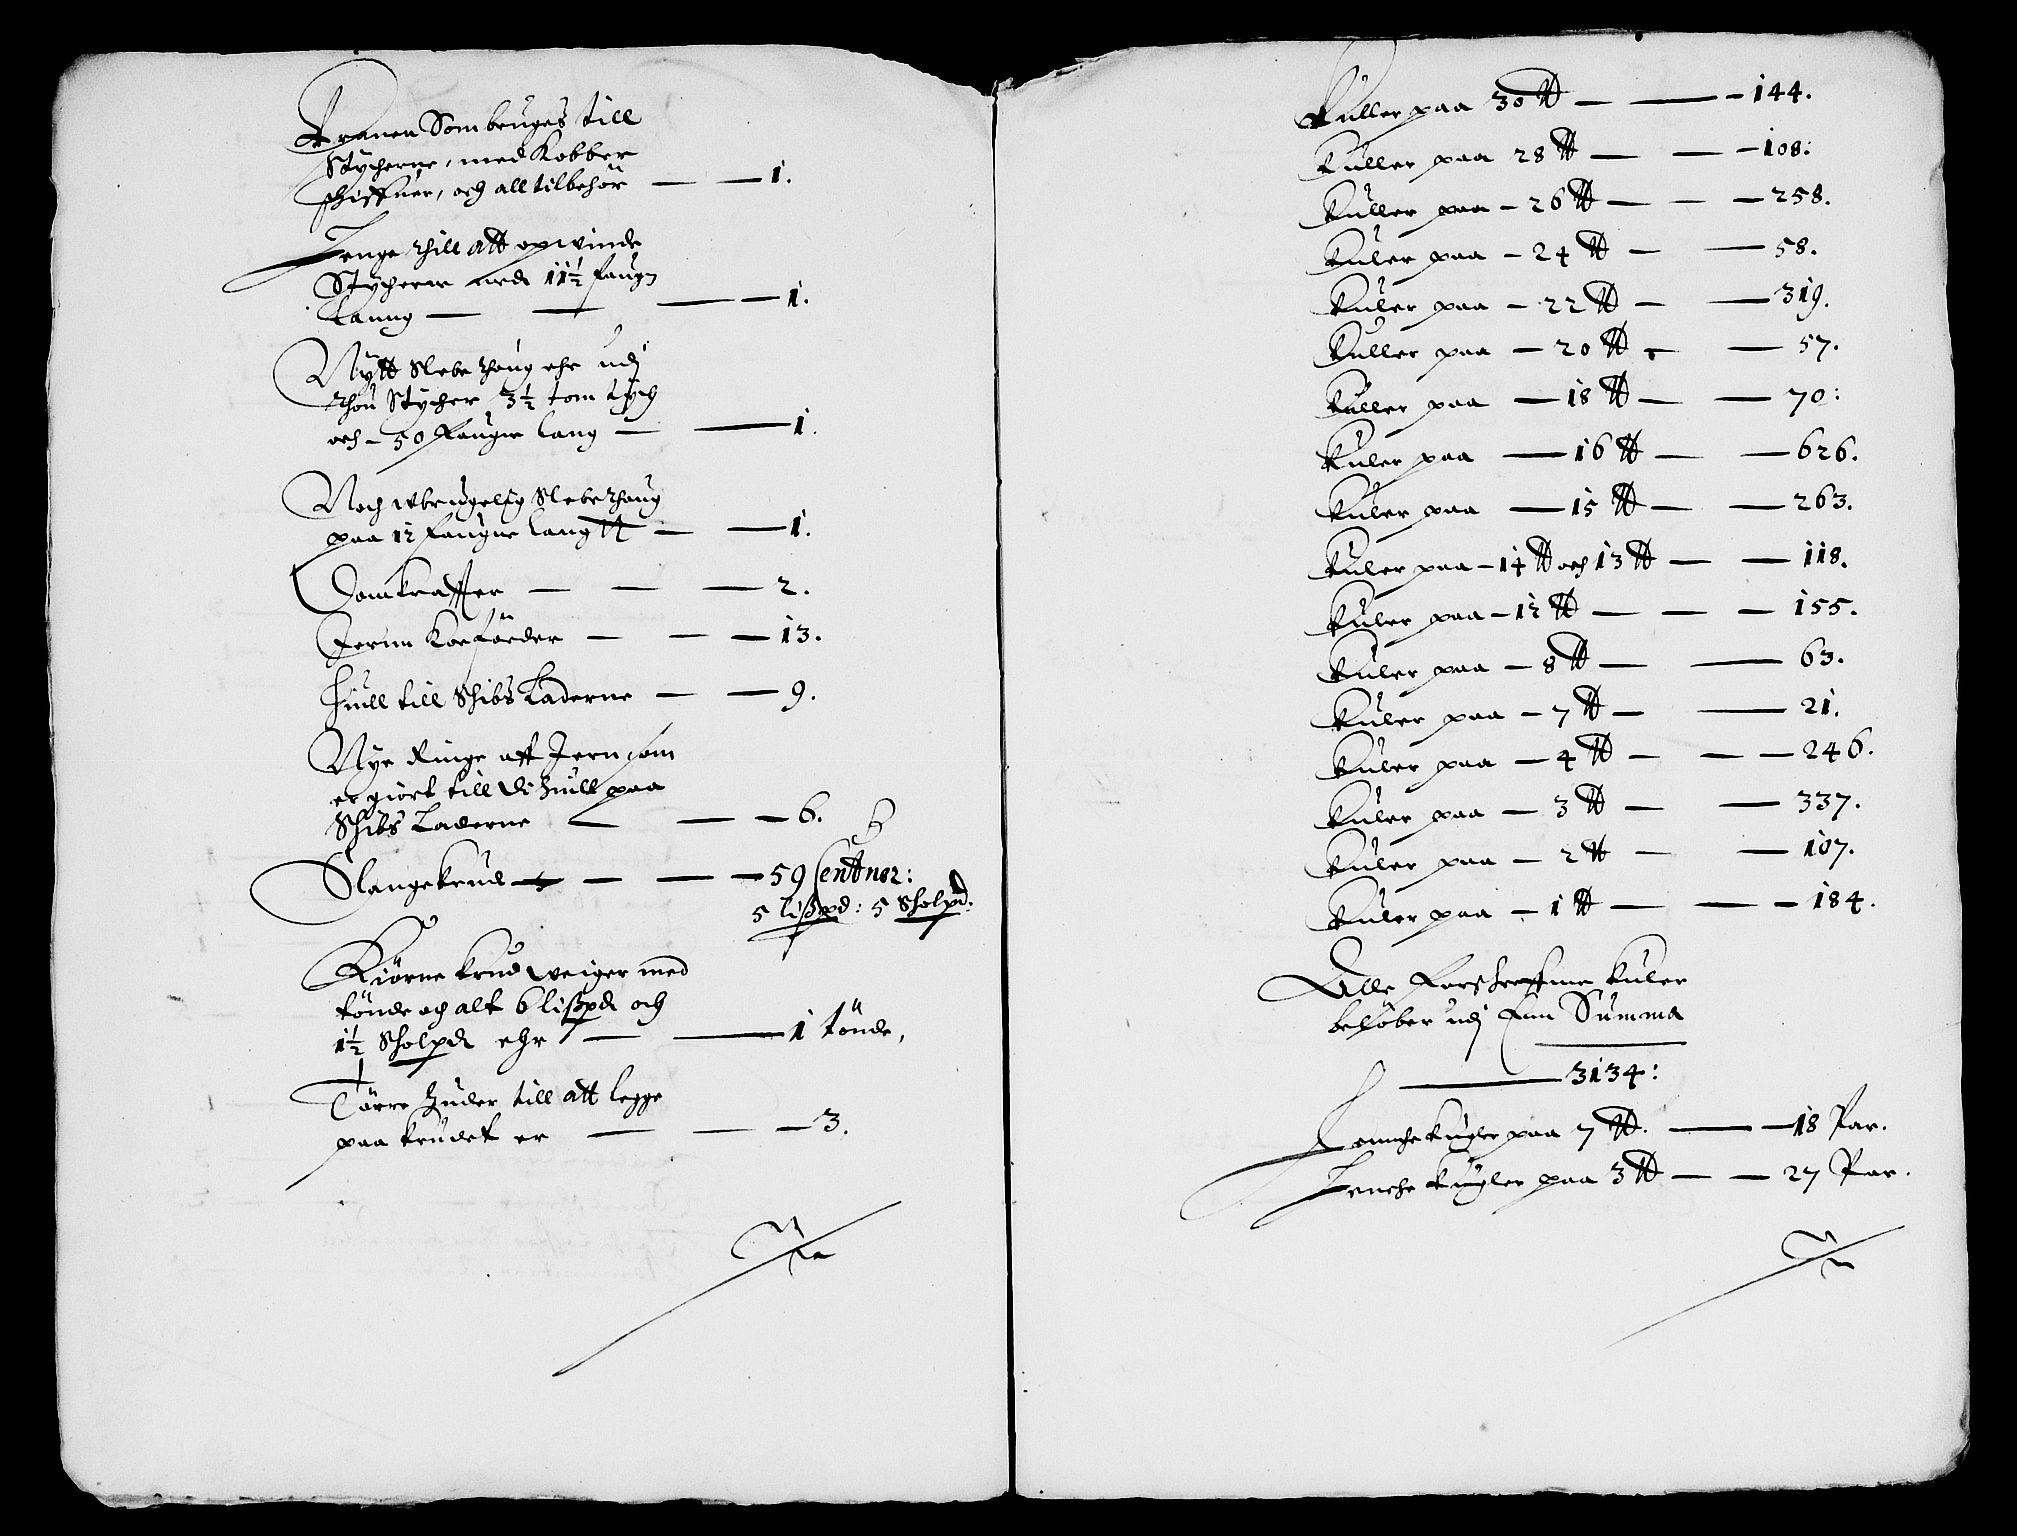 Kranen Som bruges till
Stycherne, med Kobber
schiffuer, och all tilbehör — — 1.
Lenge thill att opwinde
Stycherne med 11½ faugn
Lanng — — — 1.
Nytt Slebe thoug ehr udj
thou Stycher 3½ tom tych
och - 50 Faugne lang — — 1.
Noch wbrugelig Slebe thoug
paa 12 Faugne langtt — — 1.
Domkraffter — — — 2.
Jernn Koeföeder — — — 13.
Hiull till Schibs Laderne — — 9.
Nye Ringe aff Jern som
er giort till di Hiull paa
Schibs Laderne — — — 6.
Slangekrud — — — 59 Centner:
5 lißpd: 5 Scholpd:
Kiörne krud weiger med
tönde och alt 6 lißpd och
1½ Scholpd ehr — — 1 tönde,
Törre Huder till att legge
paa krudet er — — — 3.
Kuller paa 30 ℔ — — 144.
Kuller paa 28 ℔ — — 108:
Kuller paa - 26 ℔ — — 258.
Kuler paa - 24 ℔ — — 58.
Kuler paa - 22 ℔ — — 319.
Kuller paa — 20 ℔ — — 57.
Kuller paa — 18 ℔ — — 70:
Kuler paa — 16 ℔ — — 626.
Kuler paa — 15 ℔ — — 263.
Kuler paa - 14 ℔ och 13 ℔ — — 118.
Kuler paa - 12 ℔ — — — 155.
Kuler paa — 8 ℔ — — 63.
Kuler paa — 7 ℔ — — 21.
Kuler paa — 4 ℔ — — — 246.
Kuler paa — 3 ℔ — — 337.
Kuler paa — 2 ℔ — — 107.
Kuler paa — 1 ℔ — — — 184.
Alle Forschreffne Kuler
belöber udj Enn Summa
— 3134:
Lennche Kugler paa 7 ℔. — — 18 Par.
Lenche Kugler paa 3 ℔ — — 27 Par.